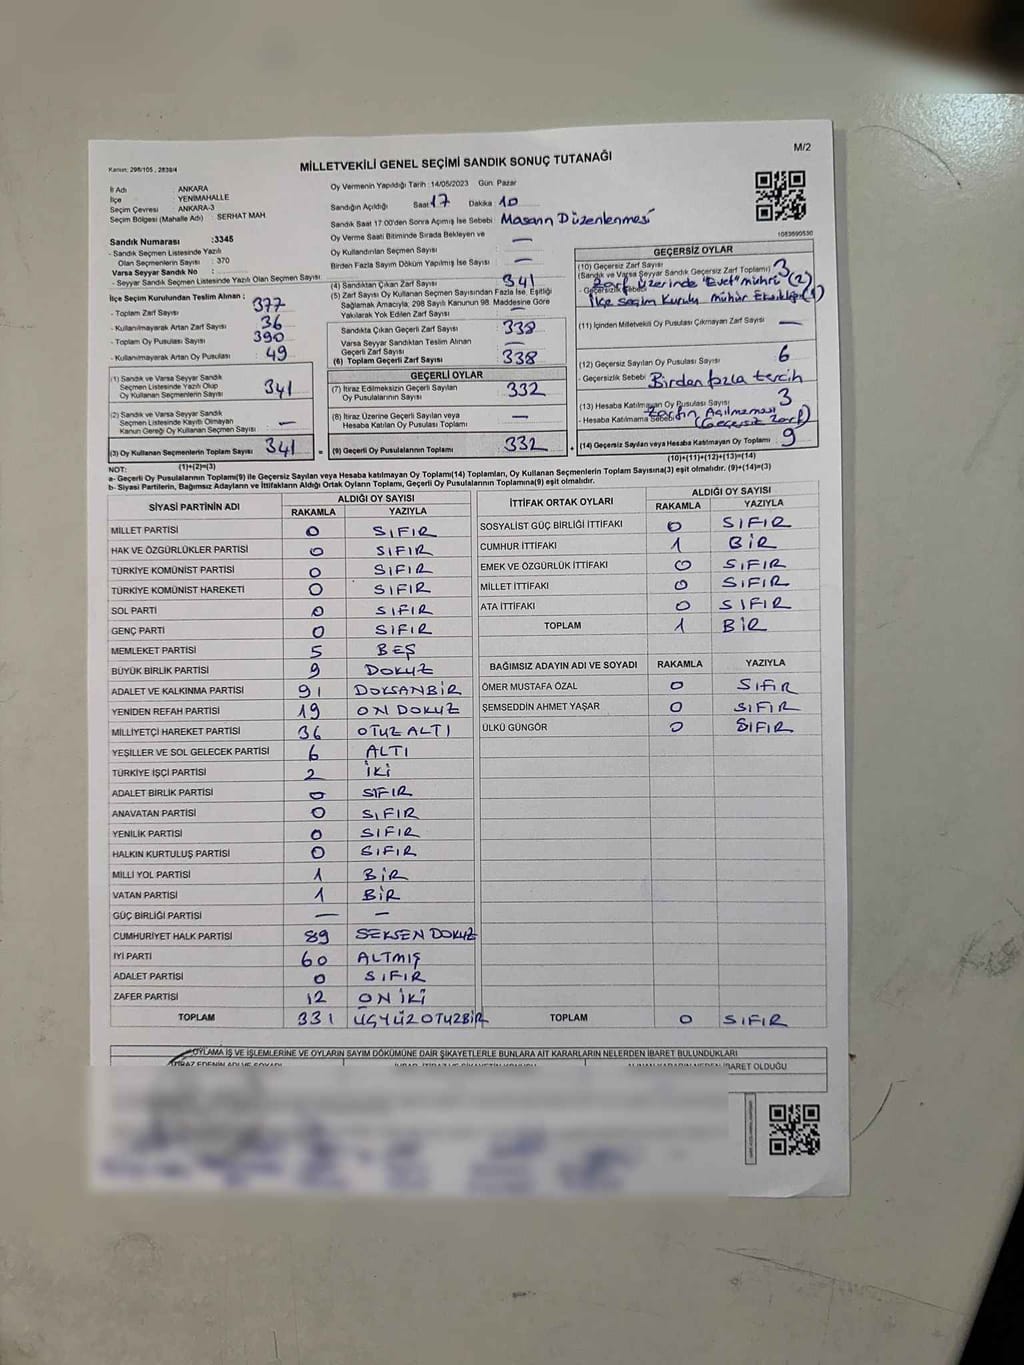 M/2
Kanun: 298/105 , 2839/4
MİLLETVEKİLİ GENEL SEÇİMİ SANDIK SONUÇ TUTANAĞI
İl Adı : ANKARA
İlçe : YENİMAHALLE
Seçim Çevresi : ANKARA-3
Seçim Bölgesi (Mahalle Adı) : SERHAT MAH
Sandık Numarası :3345
- Sandık Seçmen Listesinde Yazılı
Olan Seçmenlerin Sayısı : 370
Varsa Seyyar Sandık No :
- Seyyar Sandık Seçmen Listesinde Yazılı Olan Seçmen Sayısı :
İlçe Seçim Kurulundan Teslim Alınan :
- Toplam Zarf Sayısı 377
- Kullanılmayarak Artan Zarf Sayısı 36
- Toplam Oy Pusulası Sayısı 390
- Kullanılmayarak Artan Oy Pusulası 49
(1) Sandık ve Varsa Seyyar Sandık
Seçmen Listesinde Yazılı Olup
Oy Kullanan Seçmenlerin Sayısı 341
(2) Sandık ve Varsa Seyyar Sandık
Seçmen Listesinde Kayıtlı Olmayan
Kanun Gereği Oy Kullanan Seçmen Sayısı —
(3) Oy Kullanan Seçmenlerin Toplam Sayısı 341
(1)+(2)=(3)
Oy Vermenin Yapıldığı Tarih : 14/05/2023 Gün Pazar
Sandığın Açıldığı Saat 17 Dakika 10
Sandık Saat 17:00'den Sonra Açılmış İse Sebebi : Masanın Düzenlenmesi
Oy Verme Saati Bitiminde Sırada Bekleyen ve
Oy Kullandırılan Seçmen Sayısı —
Birden Fazla Sayım Döküm Yapılmış İse Sayısı —
(4) Sandıktan Çıkan Zarf Sayısı 341
(5) Zarf Sayısı Oy Kullanan Seçmen Sayısından Fazla İse, Eşitliği
Sağlamak Amacıyla, 298 Sayılı Kanunun 98. Maddesine Göre
Yakılarak Yok Edilen Zarf Sayısı —
Sandıkta Çıkan Geçerli Zarf Sayısı 338
Varsa Seyyar Sandıktan Teslim Alınan
Geçerli Zarf Sayısı —
(6) Toplam Geçerli Zarf Sayısı 338
GEÇERLİ OYLAR
(7) İtiraz Edilmeksizin Geçerli Sayılan
Oy Pusulalarının Sayısı 332
(8) İtiraz Üzerine Geçerli Sayılan veya
Hesaba Katılan Oy Pusulası Toplamı —
(9) Geçerli Oy Pusulalarının Toplamı 332
1083690530
GEÇERSİZ OYLAR
(10) Geçersiz Zarf Sayısı
(Sandık ve Varsa Seyyar Sandık Geçersiz Zarf Toplamı) 3
- Geçersizlik Sebebi Zarf üzerinde "Evet" mührü (2)
İlçe seçim Kurulu mühür Eksikliği (1)
(11) İçinden Milletvekili Oy Pusulası Çıkmayan Zarf Sayısı —
(12) Geçersiz Sayılan Oy Pusulası Sayısı 6
- Geçersizlik Sebebi Birden fazla tercih
(13) Hesaba Katılmayan Oy Pusulası Sayısı 3
- Hesaba Katılmama Sebebi Zarfın Açılmaması
(Geçersiz Zarf)
(14) Geçersiz Sayılan veya Hesaba Katılmayan Oy Toplamı 9
(10)+(11)+(12)+(13)=(14)
NOT:
a- Geçerli Oy Pusulalarının Toplamı(9) ile Geçersiz Sayılan veya Hesaba katılmayan Oy Toplamı(14) Toplamları, Oy Kullanan Seçmenlerin Toplam Sayısına(3) eşit olmalıdır. (9)+(14)=(3)
b- Siyasi Partilerin, Bağımsız Adayların ve İttifakların Aldığı Ortak Oyların Toplamı, Geçerli Oy Pusulalarının Toplamına(9) eşit olmalıdır.
SİYASİ PARTİNİN ADI ALDIĞI OY SAYISI
RAKAMLA YAZIYLA
MİLLET PARTİSİ 0 SIFIR
HAK VE ÖZGÜRLÜKLER PARTİSİ 0 SIFIR
TÜRKİYE KOMÜNİST PARTİSİ 0 SIFIR
TÜRKİYE KOMÜNİST HAREKETİ 0 SIFIR
SOL PARTİ 0 SIFIR
GENÇ PARTİ 0 SIFIR
MEMLEKET PARTİSİ 5 BEŞ
BÜYÜK BİRLİK PARTİSİ 9 DOKUZ
ADALET VE KALKINMA PARTİSİ 91 DOKSANBİR
YENİDEN REFAH PARTİSİ 19 ON DOKUZ
MİLLİYETÇİ HAREKET PARTİSİ 36 OTUZ ALTI
YEŞİLLER VE SOL GELECEK PARTİSİ 6 ALTI
TÜRKİYE İŞÇİ PARTİSİ 2 İKİ
ADALET BİRLİK PARTİSİ 0 SIFIR
ANAVATAN PARTİSİ 0 SIFIR
YENİLİK PARTİSİ 0 SIFIR
HALKIN KURTULUŞ PARTİSİ 0 SIFIR
MİLLİ YOL PARTİSİ 1 BİR
VATAN PARTİSİ 1 BİR
GÜÇ BİRLİĞİ PARTİSİ — —
CUMHURİYET HALK PARTİSİ 89 SEKSEN DOKUZ
İYİ PARTİ 60 ALTMIŞ
ADALET PARTİSİ 0 SIFIR
ZAFER PARTİSİ 12 ON İKİ
TOPLAM 331 ÜÇYÜZOTUZBİR
İTTİFAK ORTAK OYLARI ALDIĞI OY SAYISI
RAKAMLA YAZIYLA
SOSYALİST GÜÇ BİRLİĞİ İTTİFAKI 0 SIFIR
CUMHUR İTTİFAKI 1 BİR
EMEK VE ÖZGÜRLÜK İTTİFAKI 0 SIFIR
MİLLET İTTİFAKI 0 SIFIR
ATA İTTİFAKI 0 SIFIR
TOPLAM 1 BİR
BAĞIMSIZ ADAYIN ADI VE SOYADI RAKAMLA YAZIYLA
ÖMER MUSTAFA ÖZAL 0 SIFIR
ŞEMSEDDİN AHMET YAŞAR 0 SIFIR
ÜLKÜ GÜNGÖR 0 SIFIR
TOPLAM 0 SIFIR
OYLAMA İŞ VE İŞLEMLERİNE VE OYLARIN SAYIM DÖKÜMÜNE DAİR ŞİKAYETLERLE BUNLARA AİT KARARLARIN NELERDEN İBARET BULUNDUKLARI
İBARET OLDUĞU